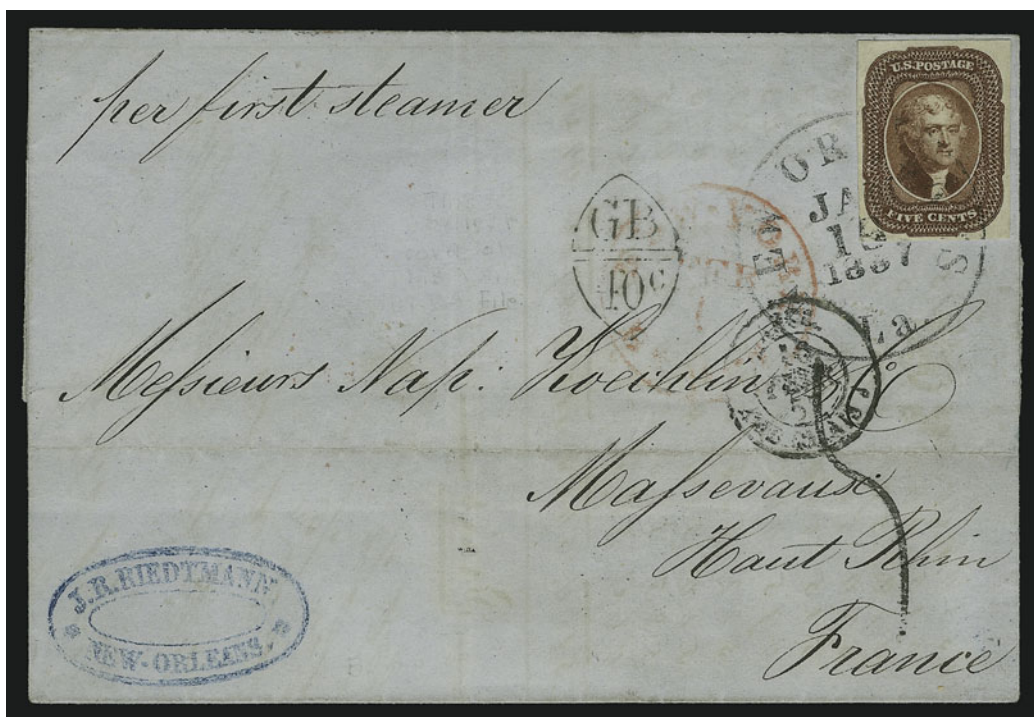 per first steamer
U.S. POSTAGE
FIVE CENTS
OR
JA
1857
La.
GB
40c
Messieurs Nap: Koechlin & Co
Massevause
Haut Rhin
France
J.R. RIEDTMANN
NEW-ORLEANS.